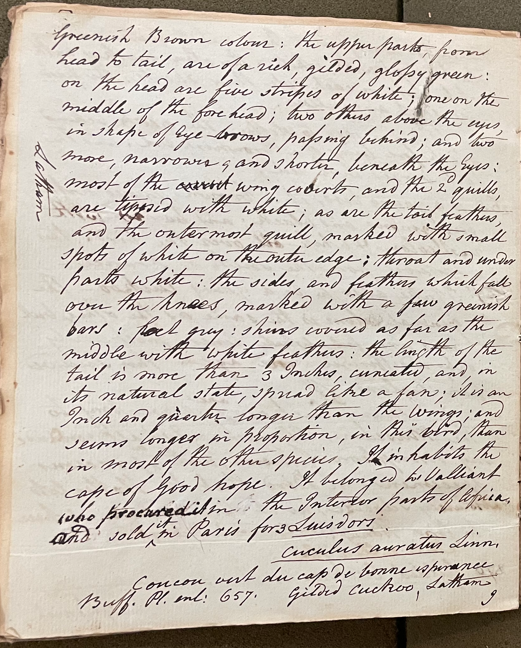 Greenish Brown colour: the upper parts, from
head to tail, are of a rich gilded, glossy green:
on the head are five stripes of white; one on the
middle of the forehead; two others above the eyes,
in shape of Eye brows, passing behind; and two
more, narrower & and shorter, beneath the Eyes:
most of the wing coverts, and the 2d quills,
are tipped with white; as are the tail feathers,
and the outermost quill, marked with small
spots of white on the outer edge; throat and under
parts white: the sides, and feathers which fall
over the knees, marked with a few greenish
bars: feet grey: shins covered as far as the
middle with white feathers: the length of the
tail is more than 3 Inches, cuneated, and, in
its natural state, spread like a fan; it is an
Inch and quarter longer than the wings; and
seems longer, in proportion, in this bird, than
in most of the other species. It inhabits the
cape of Good hope. It belonged to Valliant
who procured it in the Interior parts of Africa,
and sold it in Paris for 3 Luisdors.
Cuculus auratus Linn.
Coucou vert du cap de bonne esperance
Buff. Pl. enl: 657. Gilded Cuckoo, Latham
9
Latham